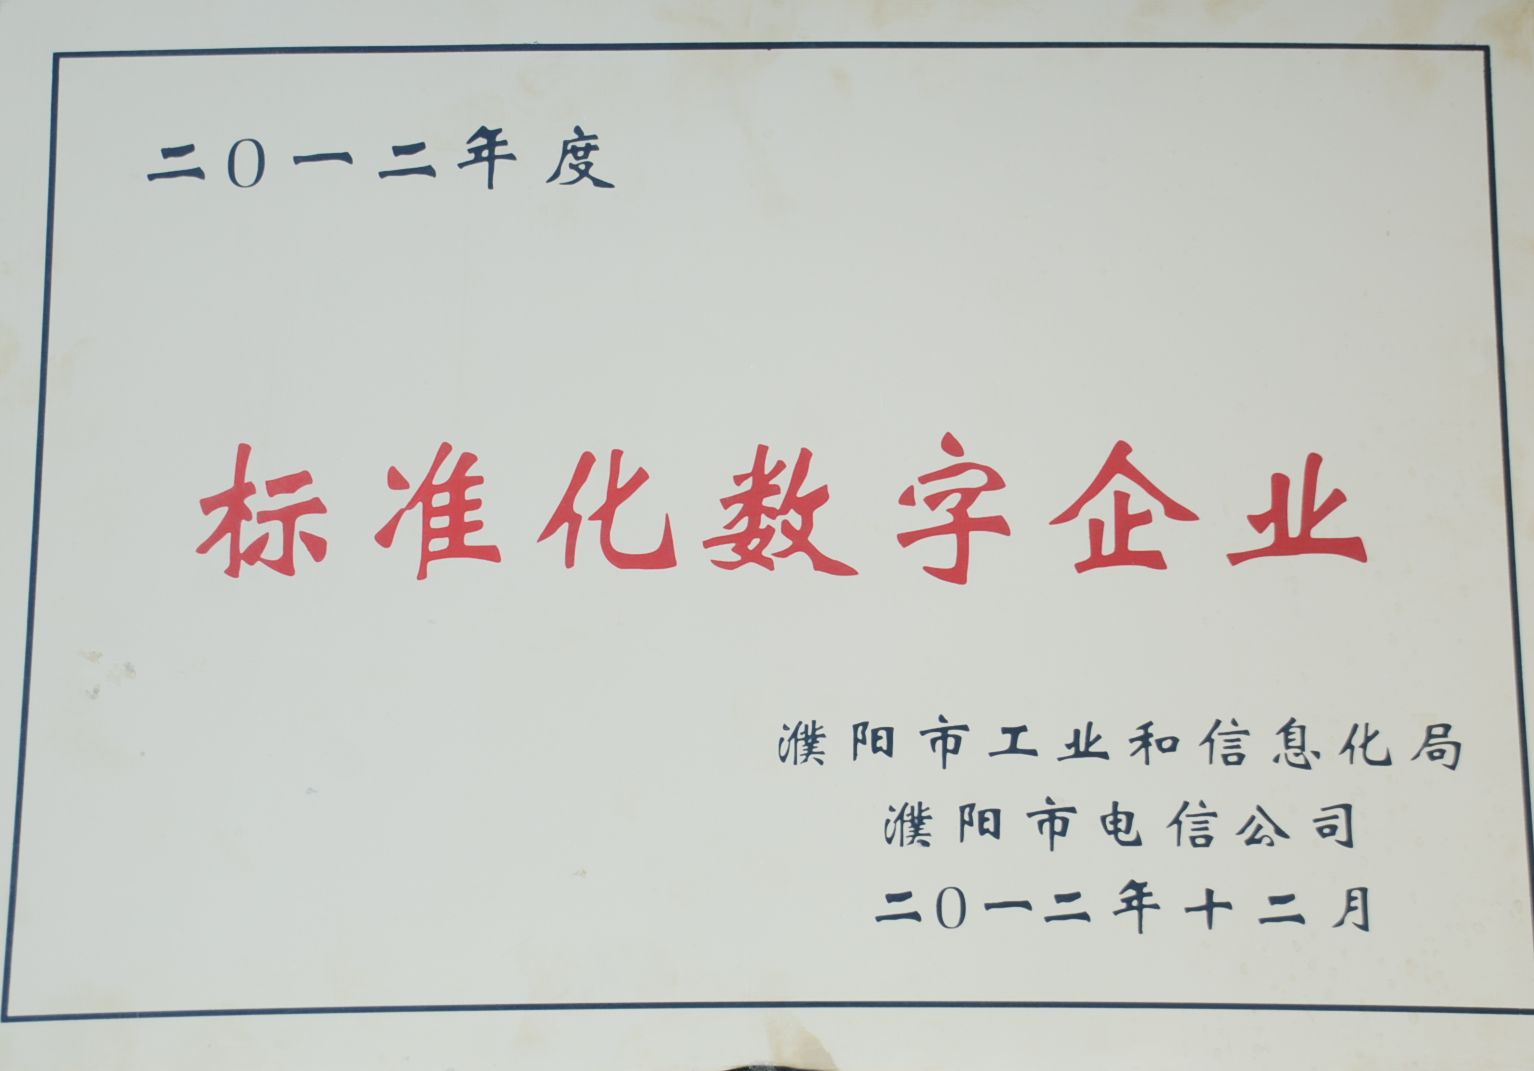 二〇一二年度
标准化数字企业
濮阳市工业和信息化局
濮阳市电信公司
二〇一二年十二月